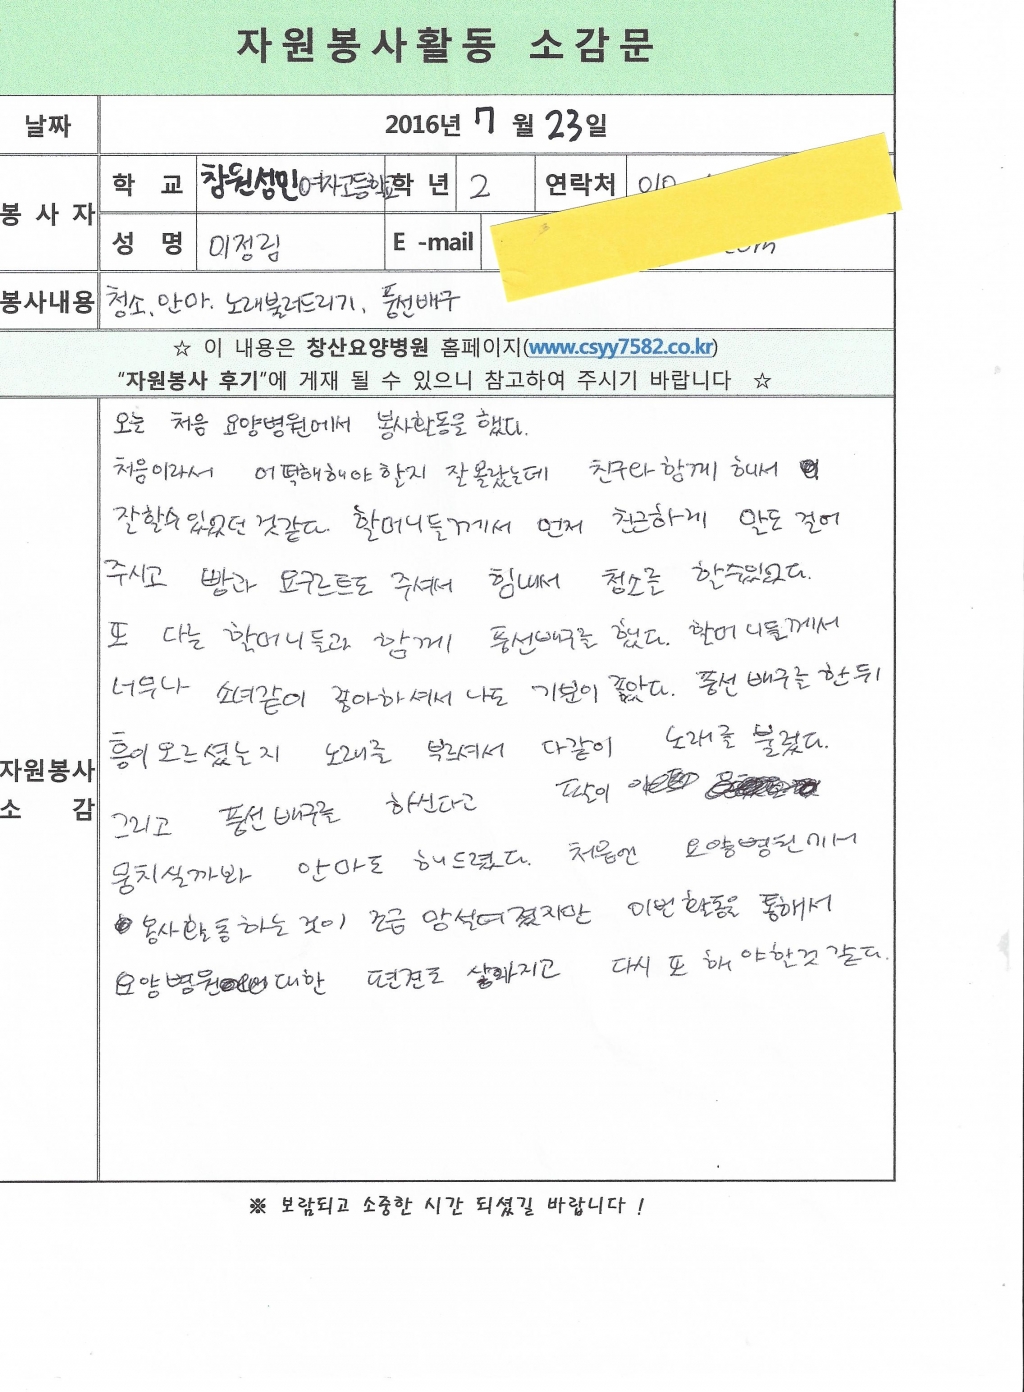 자원봉사활동 소감문
날짜 2016년 7 월 23일
봉사자 학 교 창원성민여자고등학교 학 년 2 연락처 010
성 명 이정림 E -mail com
봉사내용 청소, 안마. 노래불러드리기, 풍선배구
☆ 이 내용은 창산요양병원 홈페이지(www.csyy7582.co.kr)
"자원봉사 후기"에 게재 될 수 있으니 참고하여 주시기 바랍니다 ☆
자원봉사
소 감
오늘 처음 요양병원에서 봉사활동을 했다.
처음이라서 어떡해해야 할지 잘 몰랐는데 친구와 함께 해서
잘할수 있었던 것같다. 할머니들께서 먼저 친근하게 말도 걸어
주시고 빵과 요구르트도 주셔서 힘내서 청소를 할수있었다.
또 다른 할머니들과 함께 풍선배구를 했다. 할머니들께서
너무나 소녀같이 좋아하셔서 나도 기분이 좋았다. 풍선 배구를 한 뒤
흥이 오르셨는지 노래를 부르셔서 다같이 노래를 불렀다.
그리고 풍선 배구를 하신다고 팔이
뭉치실까봐 안마도 해드렸다. 처음엔 요양병원에서
봉사활동하는 것이 조금 망설여졌지만 이번 활동을 통해서
요양병원에 대한 편견도 사라지고 다시 또 해야한것 같다.
※ 보람되고 소중한 시간 되셨길 바랍니다 !